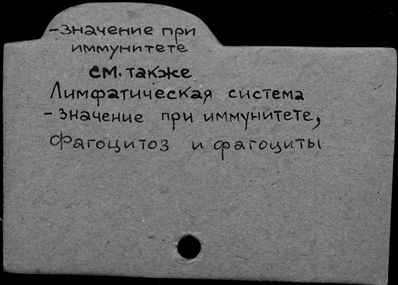 -значение при
иммунитете
см. также
Лимфатическая система
- значение при иммунитете,
Фагоцитоз и фагоциты